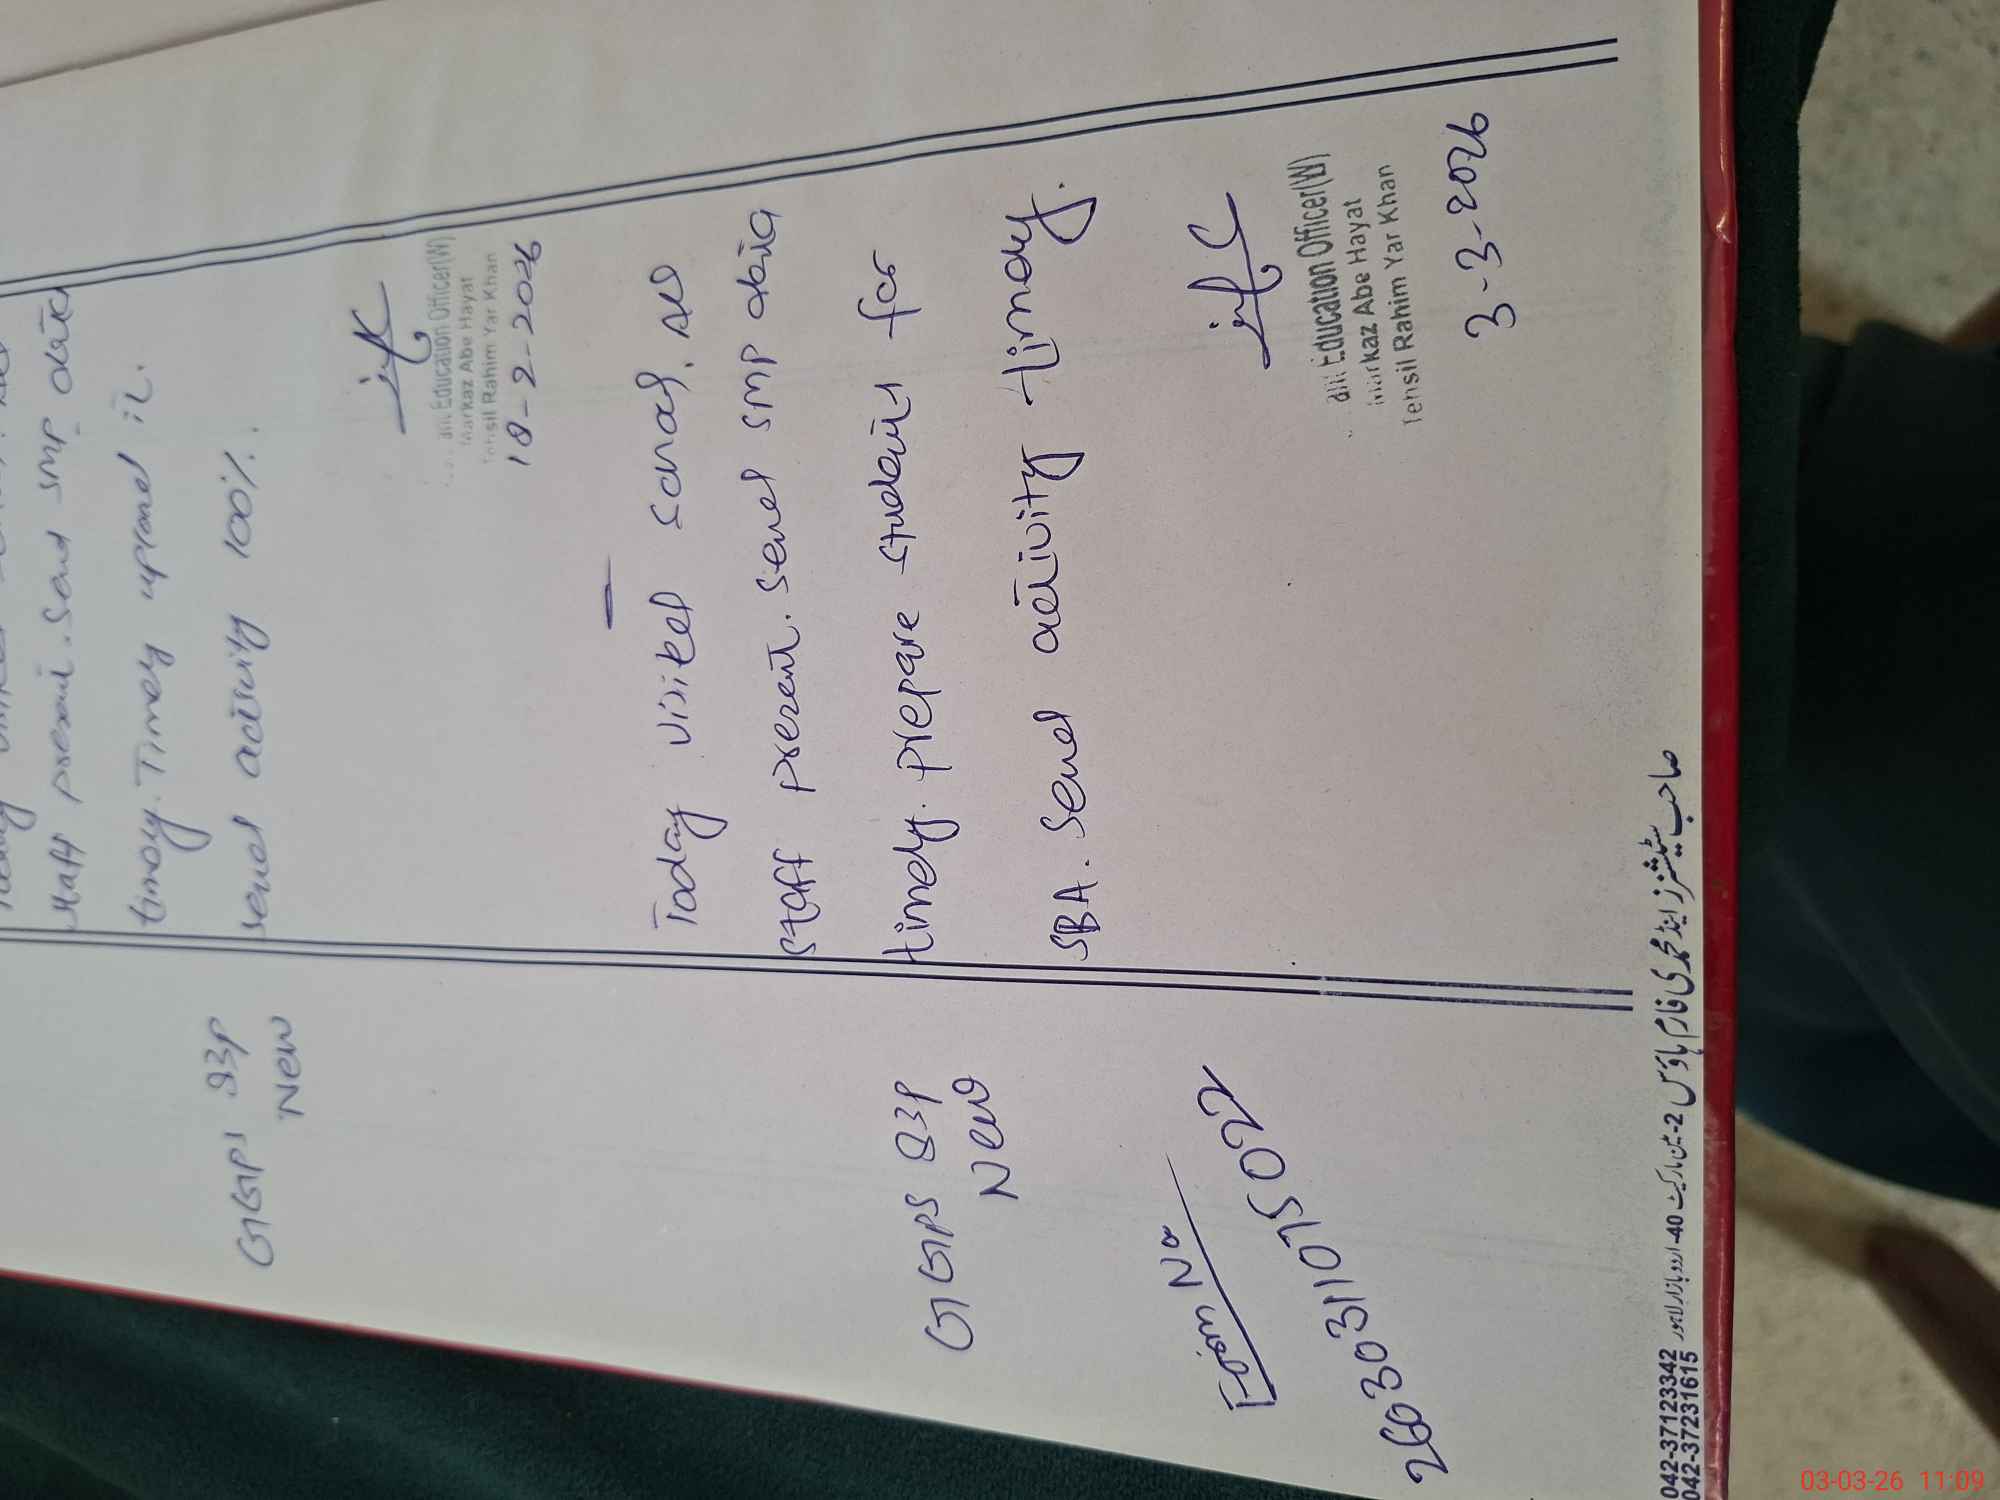 staff present. Send SMP data
timely. Timely upload it.
GGPS 93P
New
send activity 100%.
Education Officer(W)
Markaz Abe Hayat
Tehsil Rahim Yar Khan
18-2-2026
Today visited school. All
staff present. Send SMP data
GGPS 93P
New
timely. prepare students for
SBA. Send activity timely.
Form No
26030311075022
Education Officer(W)
Markaz Abe Hayat
Tehsil Rahim Yar Khan
3-3-2026
صاحب سٹیشنرز اینڈ محمدی فارم ہاؤس 2- مارکیٹ 40-اردو بازار لاہور
042-37123342
042-37231615
03-03-26 11:09